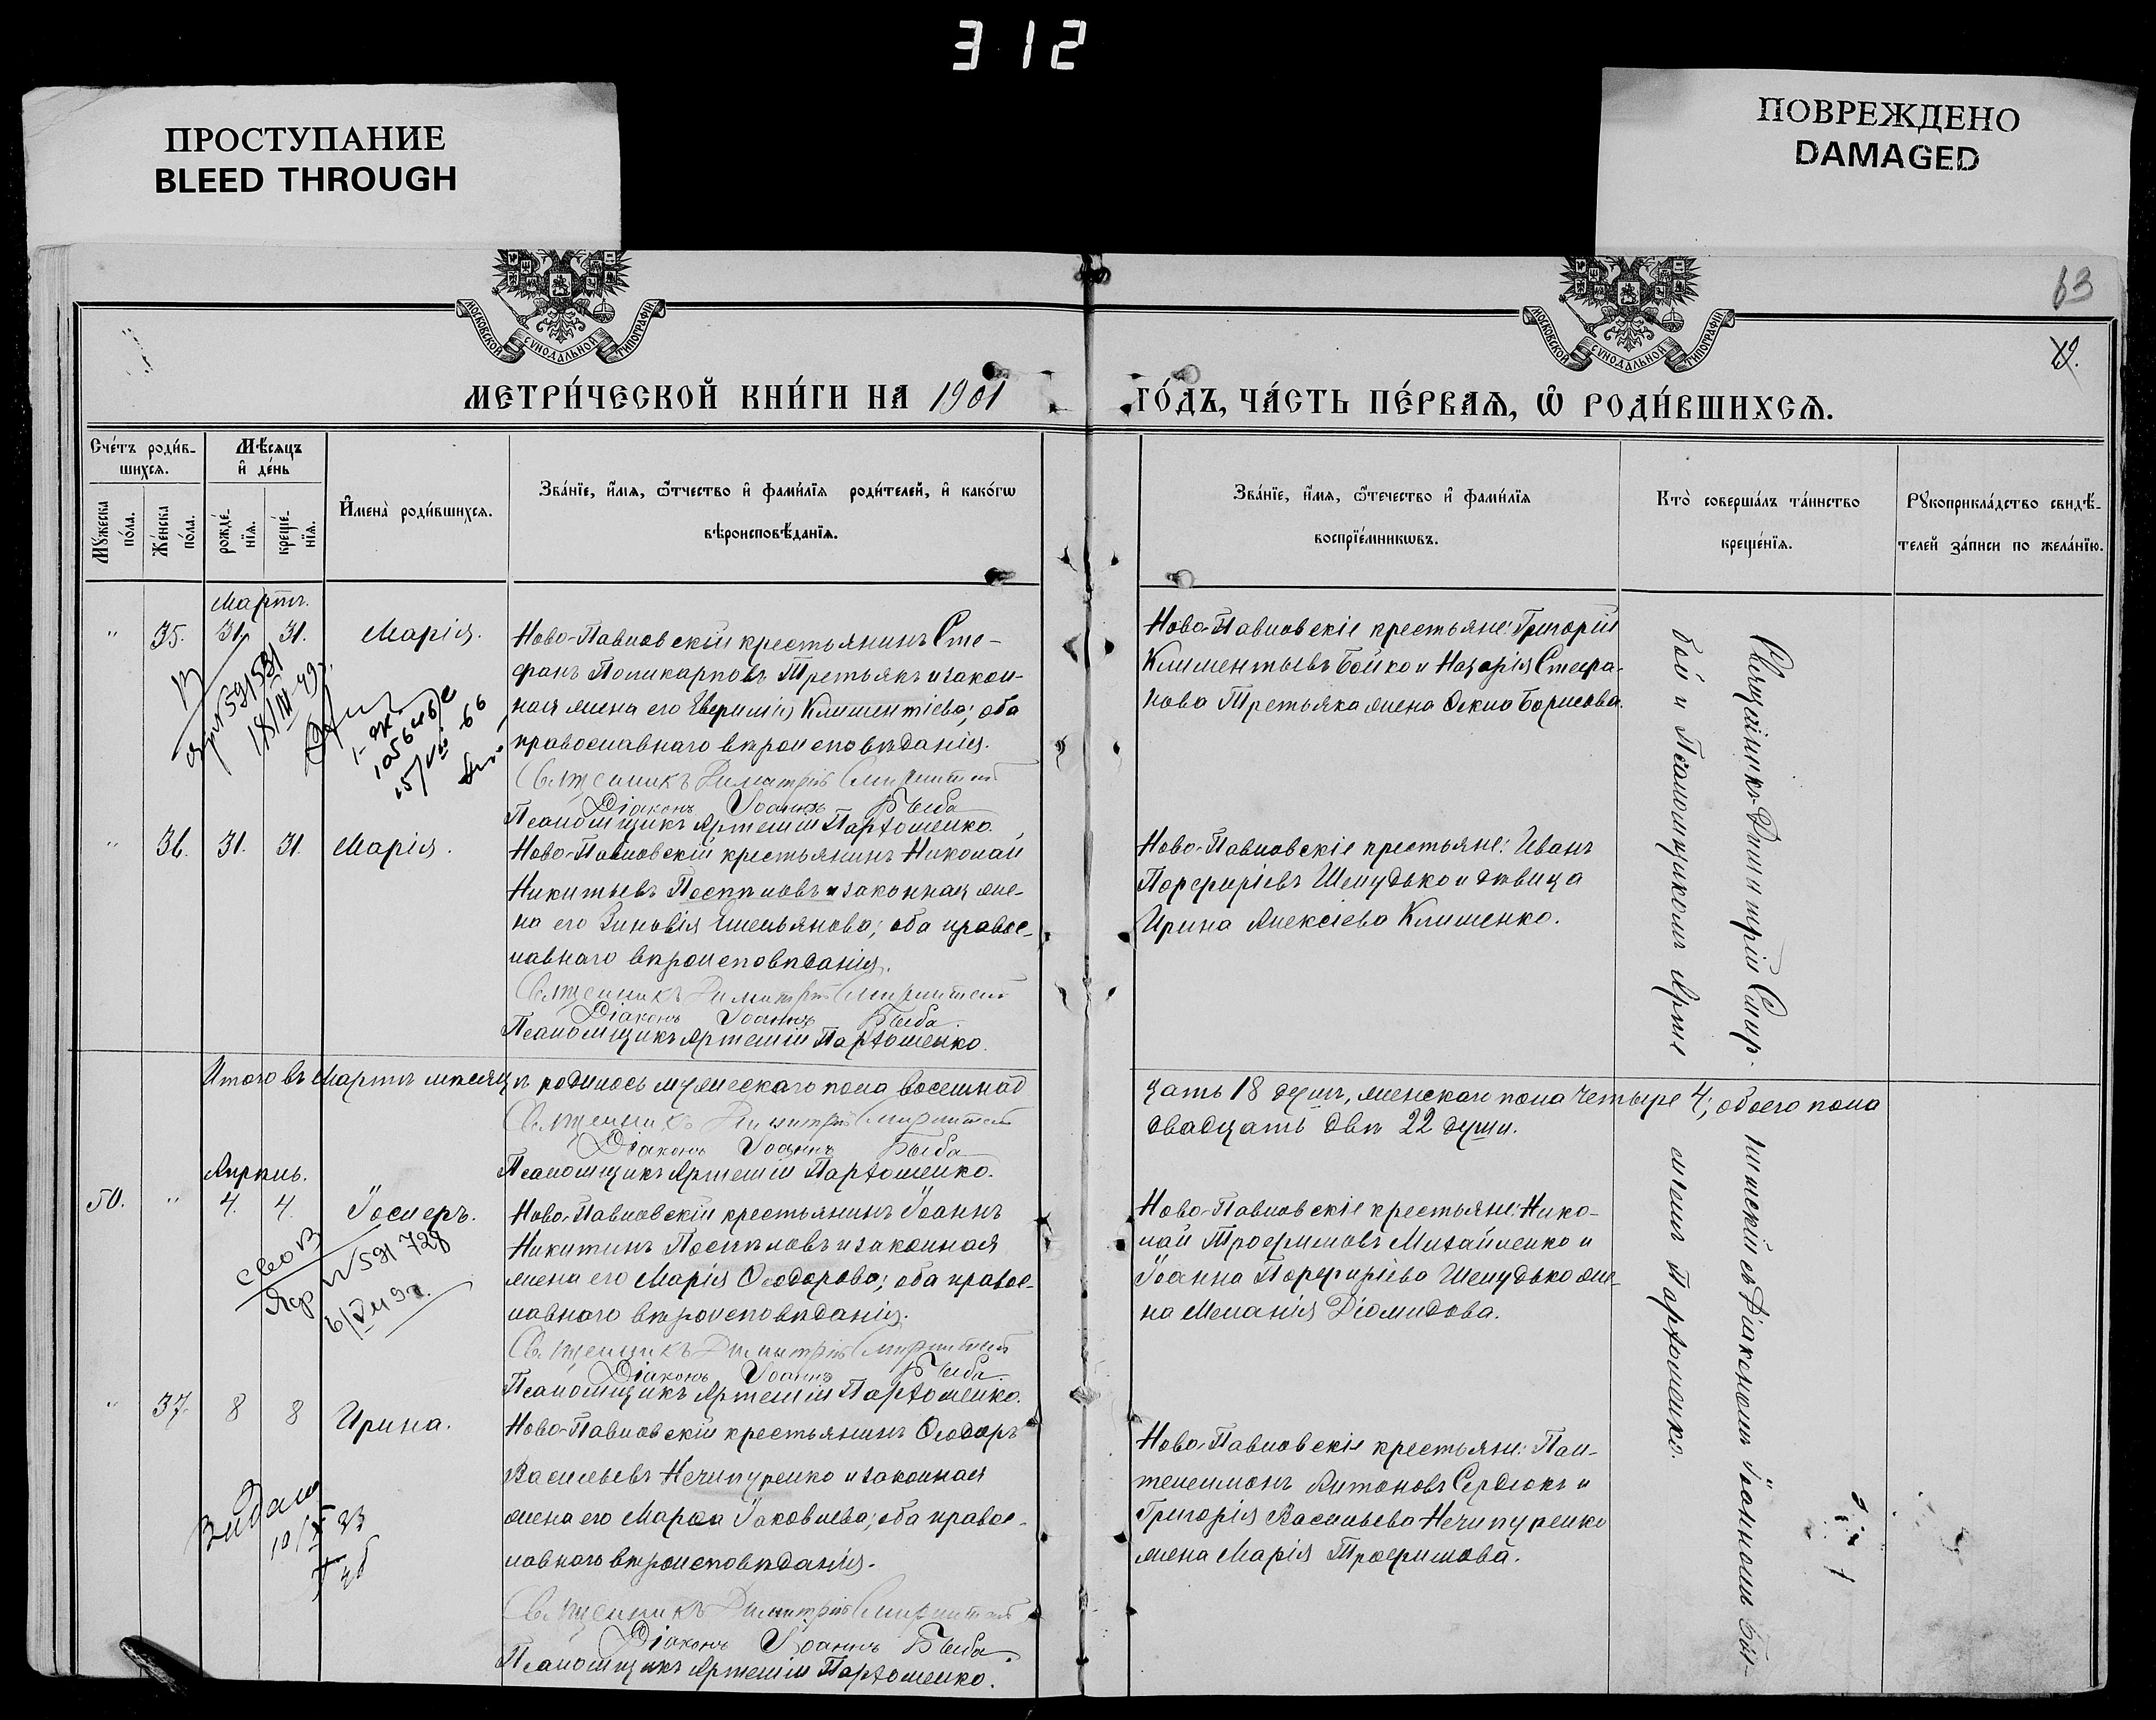 312
ПРОСТУПАНИЕ
BLEED THROUGH
ПОВРЕЖДЕНО
DAMAGED
63
МОСКОВСКОЙ СѴНОДАЛЬНОЙ ТИПОГРАФІИ
МОСКОВСКОЙ СѴНОДАЛЬНОЙ ТИПОГРАФІИ
МЕТРИ́ЧЕСКОЙ КНИ́ГИ НА 1901
ГО́ДЪ, ЧА́СТЬ ПЕ́РВАѦ, Ѡ РОДИ́ВШИХСѦ.
Сче́тъ роди́в-
шихсѧ.
Мꙋ́жеска по́ла.
Же́нска по́ла.
Мѣ́сѧцъ
и҆ де́нь
рожде́-
нїѧ.
креще́-
нїѧ.
И҆мена̀ роди́вшихсѧ.
Зва́нїе, и҆́мѧ, ѻ҆́тчество и҆ фами́лїѧ роди́телей, и҆ како́гѡ
вѣроисповѣ́данїѧ.
Зва́нїе, и҆́мѧ, ѻ҆те́чество и҆ фами́лїѧ
воспрїе́мникѡвъ.
Кто̀ соверша́лъ та́инство
креще́нїѧ.
Рꙋкоприкла́дство свидѣ́-
телей за́писи по жела́нїю.
Мартъ.
" 35. 31. 31. Марія.
Ново-Павловскій крестьянинъ Сте-
фанъ Поликарповъ Третьякъ и закон-
ная жена его Евфимія Климентіева; оба
православнаго вѣроисповѣданія.
Священникъ Димитрій
Діаконъ Іоаннъ Быба
Псаломщикъ Артемій Пархоменко.
Ново-Павловскіе крестьяне: Григорій
Климентьевъ Бойко и Назарія Стефа-
нова Третьяка жена Фекла Борисова.
591531
18/III 49г.
" 36. 31. 31. Марія.
Ново-Павловскій крестьянинъ Николай
Никитьевъ Поспѣловъ и законная же-
на его Зиновія Емельянова; оба правос-
лавнаго вѣроисповѣданія.
Священникъ Димитрій
Діаконъ Іоаннъ Быба.
Псаломщикъ Артемій Пархоменко.
Ново-Павловскіе крестьяне: Иванъ
Порфиріевъ Шепудько и дѣвица
Ирина Алексіева Клименко.
Итого въ Мартѣ мѣсяцѣ родилось мужескаго пола восемнад
цать 18 душъ, женскаго пола четыре 4; обоего пола
двадцать двѣ 22 души.
Священникъ Димитрій
Діаконъ Іоаннъ Быба
Псаломщикъ Артемій Пархоменко.
Апрѣль.
50. " 4. 4. Іосифъ.
Ново-Павловскій крестьянинъ Іоаннъ
Никитинъ Поспѣловъ и законная
жена его Марія Ѳеодорова; оба правос-
лавнаго вѣроисповѣданія.
Священникъ Димитрій
Діаконъ Іоаннъ Быба.
Псаломщикъ Артемій Пархоменко.
Ново-Павловскіе крестьяне: Нико-
лай Трофимовъ Михайленко и
Іоанна Порфиріева Шепудько же-
на Меланія Діомидова.
N 591 728
" 37. 8 8 Ирина.
Ново-Павловскій крестьянинъ Ѳеодоръ
Васильевъ Нечипуренко и законная
жена его Марѳа Іаковлева; оба правос-
лавнаго вѣроисповѣданія.
Священникъ Димитрій
Діаконъ Іоаннъ Быба.
Псаломщикъ Артемій Пархоменко.
Ново-Павловскіе крестьяне: Пан-
телеимонъ Антоновъ Сердюкъ и
Григорія Васильева Нечипуренко
жена Марія Трофимова.
Священникъ Димитрій Смир-
нитскій съ Діакономъ Іоанномъ Бы-
бой и Псаломщикомъ Арте
міемъ Пархоменко.